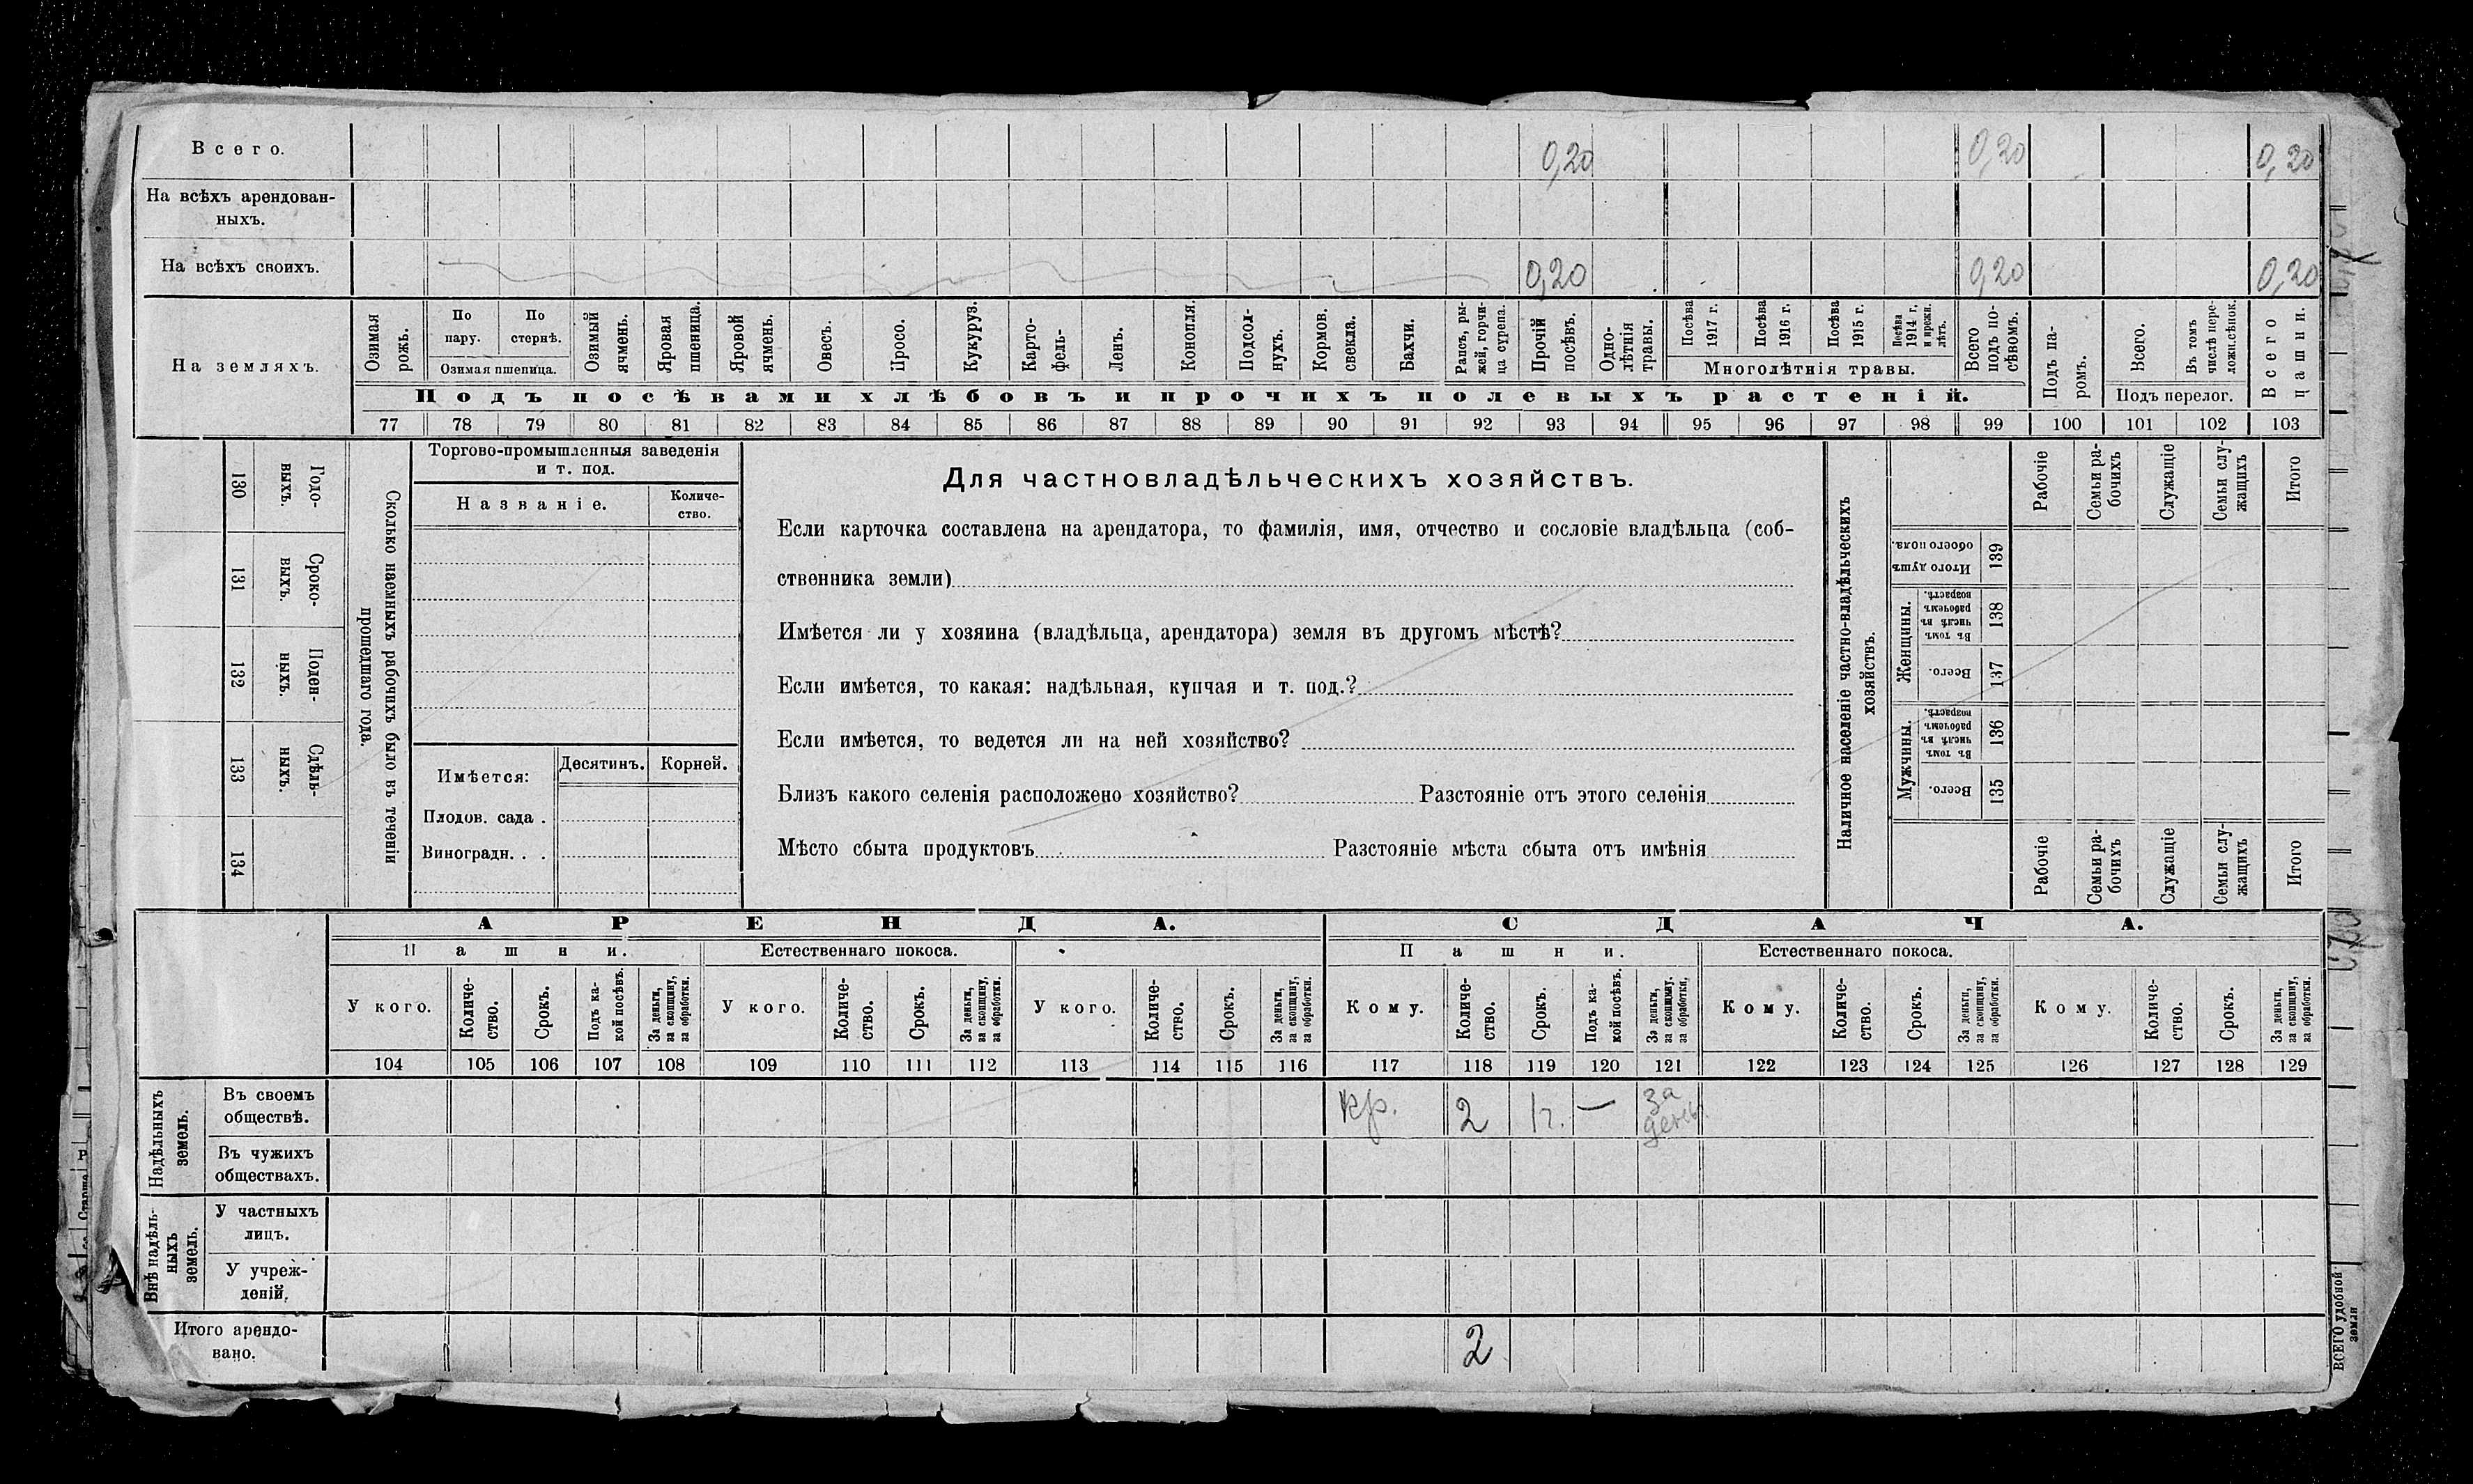 Всего. 0,20 0,20 0,20
На всѣхъ арендован-
ныхъ.
На всѣхъ своихъ. 0,20 0,20 0,20
На земляхъ.
Озимая рожь.
По пару.
По стернѣ.
Озимая пшеница.
Озимый ячмень.
Яровая пшеница.
Яровой ячмень.
Овесъ.
Просо.
Кукуруз.
Карто-
фель-
Ленъ.
Конопля.
Подсол-
нухъ.
Кормов. свекла.
Бахчи.
Рапсъ, ры-
жей, горчи-
ца сурепа.
Прочій посѣвъ.
Одно-
лѣтнія
травы.
Посѣва 1917 г.
Посѣва 1916 г.
Посѣва 1915 г.
Посѣва 1914 г. и прежн. лѣтъ.
Многолѣтнія травы.
Всего подъ по-
сѣвомъ.
Подъ па-
ромъ.
Всего.
Въ томъ числѣ пере-
ложн.сѣнок.
Подъ перелог.
Всего пашни.
Подъ посѣвами хлѣбовъ и прочихъ полевыхъ растеній.
77 78 79 80 81 82 83 84 85 86 87 88 89 90 91 92 93 94 95 96 97 98 99 100 101 102 103
130 Годо-
выхъ.
131 Сроко-
выхъ.
132 Поден-
ныхъ.
133 Сдѣль-
ныхъ.
134
Сколько наемныхъ рабочихъ было въ теченіи
прошедшаго года.
Торгово-промышленныя заведенія
и т. под.
Названіе.
Количе-
ство.
Имѣется:
Десятинъ. Корней.
Плодов. сада .
Виноградн. . .
Для частновладѣльческихъ хозяйствъ.
Если карточка составлена на арендатора, то фамилія, имя, отчество и сословіе владѣльца (соб-
ственника земли)
Имѣется ли у хозяина (владѣльца, арендатора) земля въ другомъ мѣстѣ?
Если имѣется, то какая: надѣльная, купчая и т. под.?
Если имѣется, то ведется ли на ней хозяйство?
Близъ какого селенія расположено хозяйство? Разстояніе отъ этого селенія
Мѣсто сбыта продуктовъ Разстояніе мѣста сбыта отъ имѣнія
Наличное населеніе частно-владѣльческихъ
хозяйствъ.
Рабочіе
Семьи ра-
бочихъ
Служащіе
Семьи слу-
жащихъ
Итого
Итого душъ обоего пола. 139
Женщины.
Въ томъ числѣ въ рабочемъ возрастѣ. 138
Всего. 137
Мужчины.
Въ томъ числѣ въ рабочемъ возрастѣ. 136
Всего. 135
Рабочіе
Семьи ра-
бочихъ
Служащіе
Семьи слу-
жащихъ
Итого
АРЕНДА. СДАЧА.
Пашни. Естественнаго покоса. Пашни. Естественнаго покоса.
У кого.
Количе-
ство.
Срокъ.
Подъ ка-
кой посѣвъ.
За деньги,
за скопщину,
за обработки.
У кого.
Количе-
ство.
Срокъ.
За деньги,
за скопщину,
за обработки.
У кого.
Количе-
ство.
Срокъ.
За деньги,
за скопщину,
за обработки.
Кому.
Количе-
ство.
Срокъ.
Подъ ка-
кой посѣвъ.
За деньги,
за скопщину,
за обработки,
Кому.
Количе-
ство.
Срокъ.
За деньги,
за скопщину,
за обработки.
Кому.
Количе-
ство.
Срокъ.
За деньги,
за скопщину,
за обработки.
104 105 106 107 108 109 110 111 112 113 114 115 116 117 118 119 120 121 122 123 124 125 126 127 128 129
Надѣльныхъ
земель.
Въ своемъ
обществѣ.
кр. 2 — за
день.
Въ чужихъ
обществахъ.
Внѣ надѣль-
ныхъ
земель.
У частныхъ
лицъ.
У учреж-
деній.
Итого арендо-
вано.
2
ВСЕГО удобной
земли